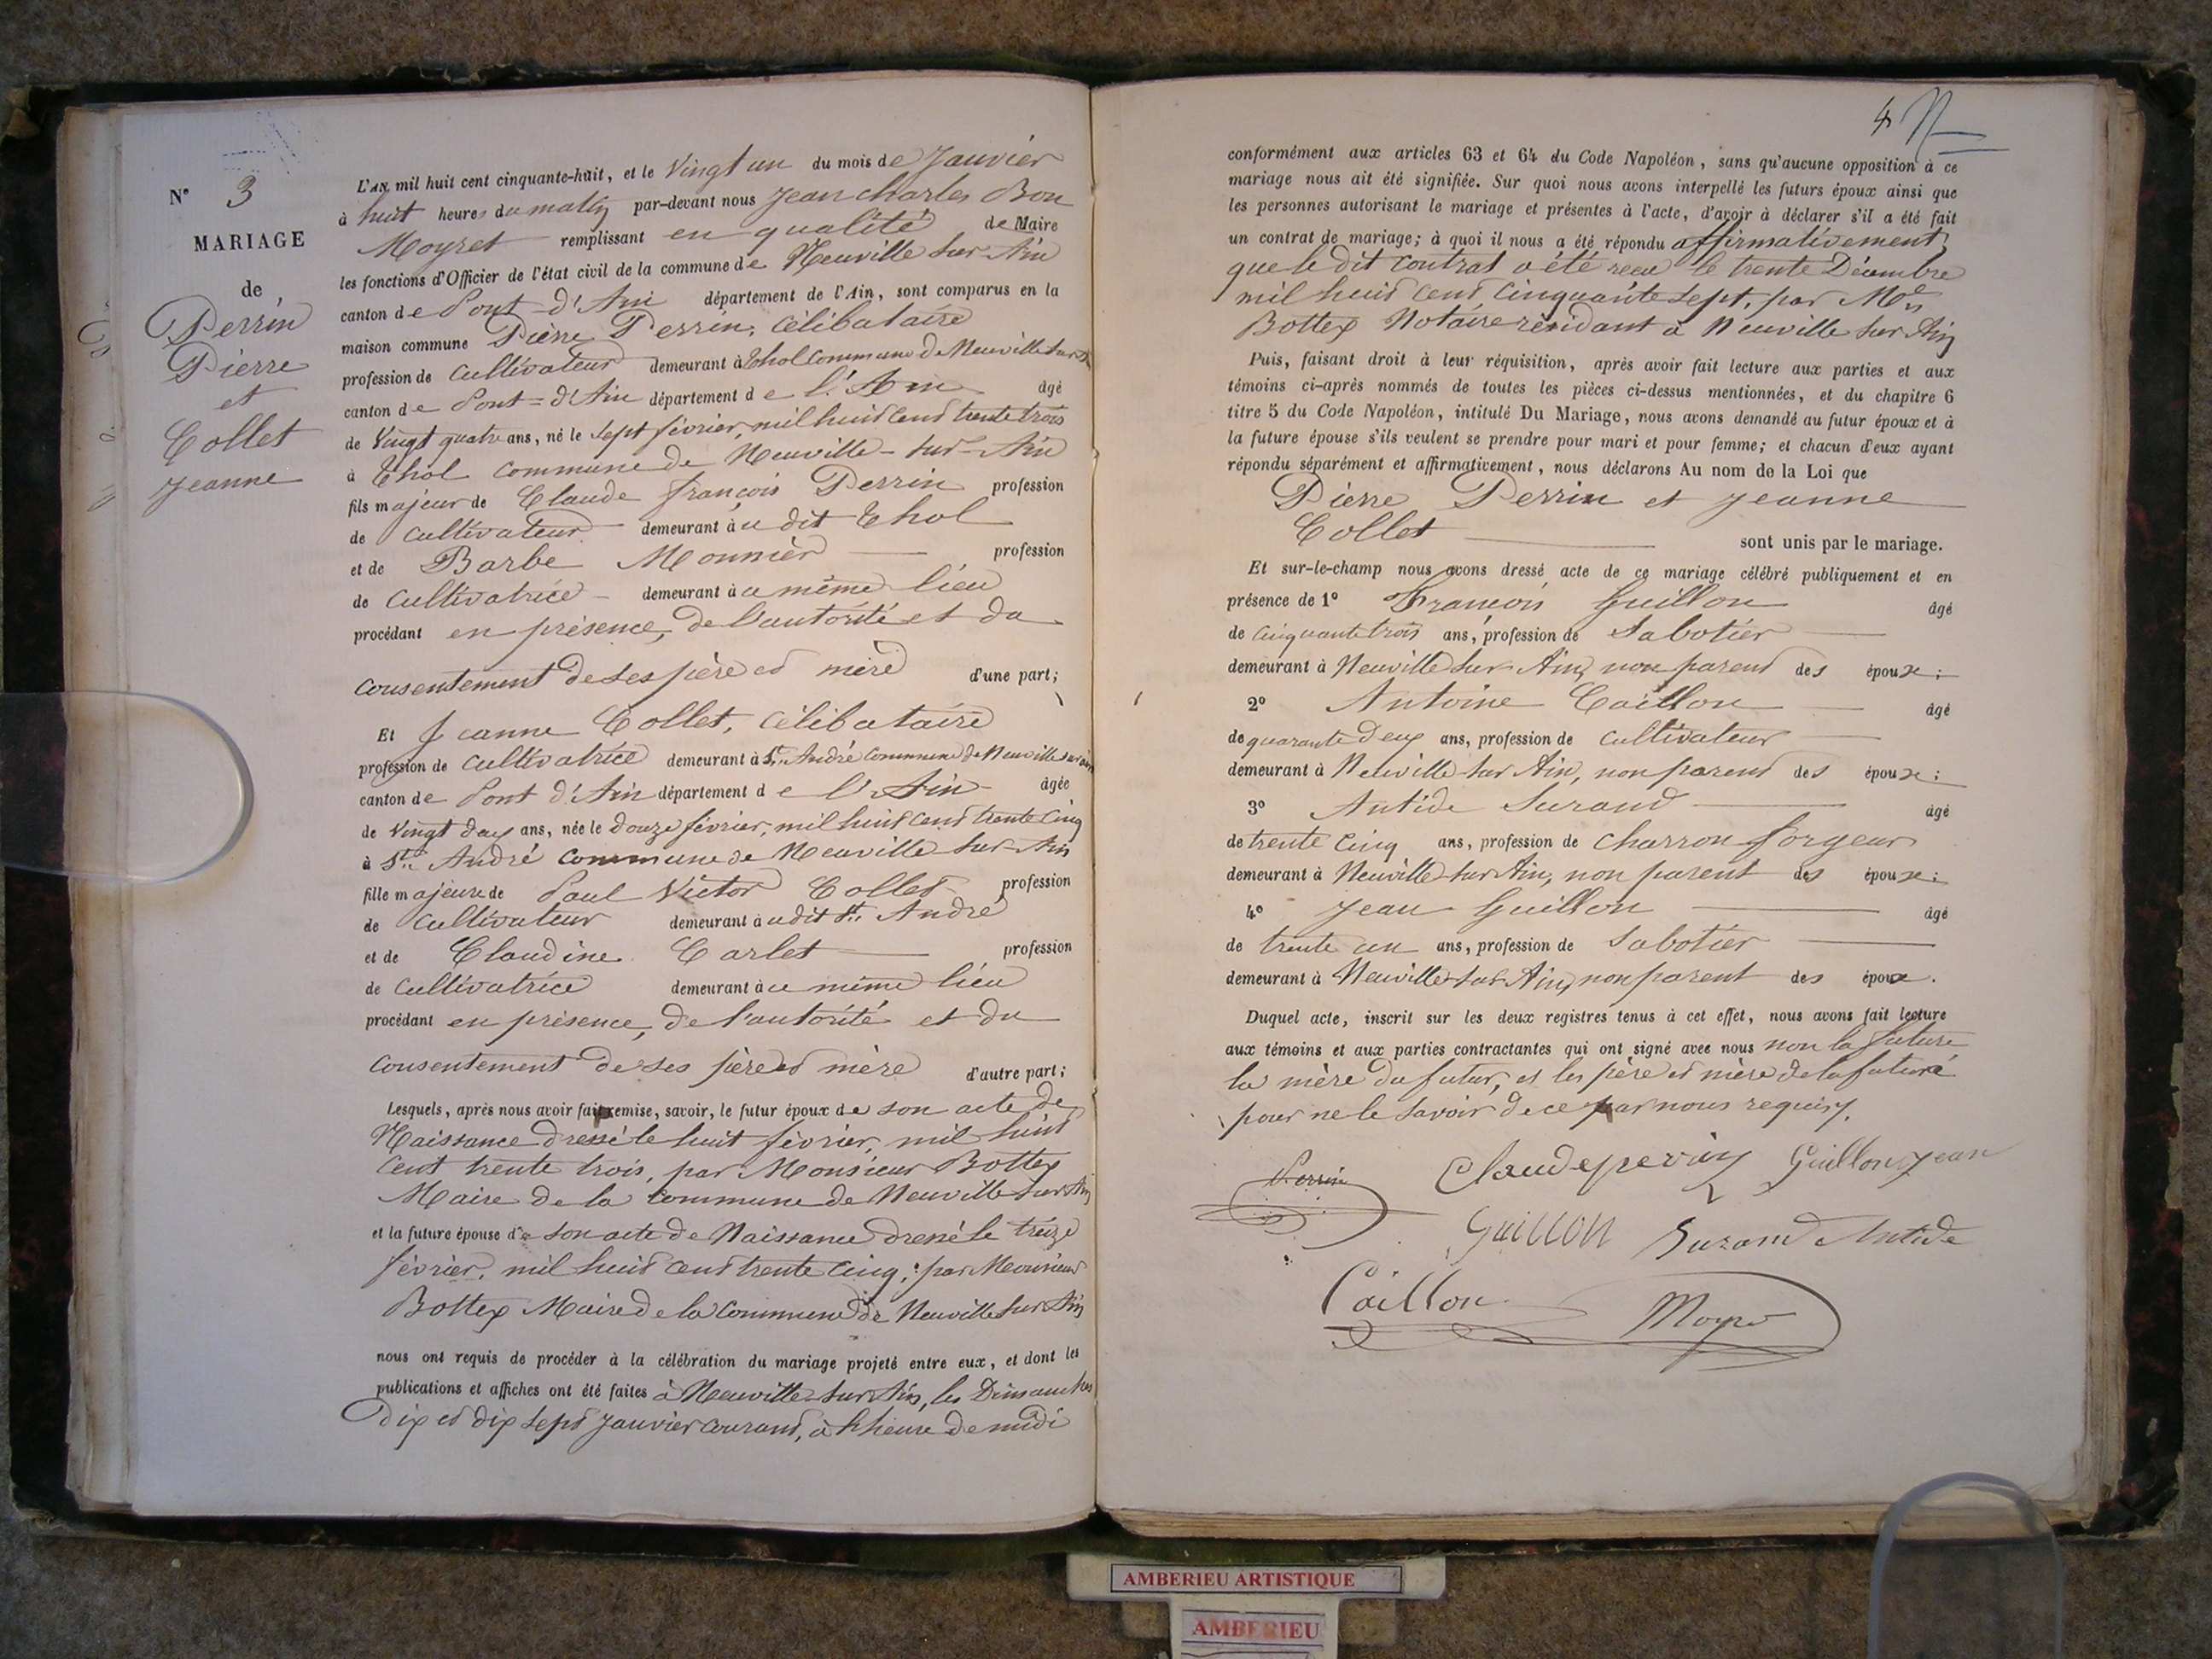 N° 3
MARIAGE
de
Perrin
Pierre
et
Collet
Jeanne
L'an mil huit cent cinquante-huit, et le Vingt un du mois de Janvier
à huit heures du matin par-devant nous Jean Charles Bon
Moyret remplissant en qualité de Maire
les fonctions d'Officier de l'état civil de la commune de Neuville sur Ain
canton de Pont-d'Ain département de l'Ain, sont comparus en la
maison commune Pierre Perrin, célibataire
profession de Cultivateur demeurant à Thol Commune de Neuville sur Ain
canton de Pont=d'Ain département de l'Ain âgé
de Vingt quatre ans, né le sept février, mil huit cent trente trois
à Thol commune de Neuville-sur-Ain
fils majeur de Claude françois Perrin profession
de cultivateur demeurant au dit Thol
et de Barbe Monnier profession
de cultivatrice demeurant au même lieu
procédant en présence, de l'autorité et du
consentement de ses père et mère d'une part;
Et Jeanne Collet, célibataire
profession de cultivatrice demeurant à St. André Commune de Neuville sur ain
canton de Pont d'Ain département de l'Ain âgée
de Vingt deux ans, née le douze février, mil huit cent trente cinq
à St. André commune de Neuville sur Ain
fille majeure de Paul Victor Collet profession
de Cultivateur demeurant audit St. André
et de Claudine Carlet profession
de cultivatrice demeurant au même lieu
procédant en présence, de l'autorité et du
consentement de ses père et mère d'autre part;
Lesquels, après nous avoir fait remise, savoir, le futur époux de son acte de
Naissance dressé le huit février, mil huit
cent trente trois, par Monsieur Bottex
Maire de la commune de Neuville sur Ain
et la future épouse de son acte de Naissance dressé le treize
février, mil huit cent trente cinq, par Monsieur
Bottex Maire de la Commune de Neuville sur Ain
nous ont requis de procéder à la célébration du mariage projeté entre eux, et dont les
publications et affiches ont été faites à Neuville-sur-Ain, les Dimanches
dix et dix sept Janvier courant, à l'heure de midi
4
conformément aux articles 63 et 64 du Code Napoléon, sans qu'aucune opposition à ce
mariage nous ait été signifiée. Sur quoi nous avons interpellé les futurs époux ainsi que
les personnes autorisant le mariage et présentes à l'acte, d'avoir à déclarer s'il a été fait
un contrat de mariage; à quoi il nous a été répondu affirmativement,
que le dit contrat a été recu le trente Décembre
mil huit cent cinquante sept, par Me
Bottex Notaire résidant à Neuville sur Ain
Puis, faisant droit à leur réquisition, après avoir fait lecture aux parties et aux
témoins ci-après nommés de toutes les pièces ci-dessus mentionnées, et du chapitre 6
titre 5 du Code Napoléon, intitulé Du Mariage, nous avons demandé au futur époux et à
la future épouse s'ils veulent se prendre pour mari et pour femme; et chacun d'eux ayant
répondu séparément et affirmativement, nous déclarons Au nom de la Loi que
Pierre Perrin et Jeanne
Collet sont unis par le mariage.
Et sur-le-champ nous avons dressé acte de ce mariage célébré publiquement et en
présence de 1° François Guillon âgé
de cinquante trois ans, profession de Sabotier
demeurant à Neuville sur Ain, non parent des époux;
2° Antoine Caillon âgé
de quarante Deux ans, profession de cultivateur
demeurant à Neuville sur Ain, non parent des époux;
3° Antide Surand âgé
de trente cinq ans, profession de charron forgeur
demeurant à Neuville-sur-Ain, non parent des époux;
4° Jean Guillon âgé
de trente un ans, profession de Sabotier
demeurant à Neuville-sur-Ain, non parent des époux.
Duquel acte, inscrit sur les deux registres tenus à cet effet, nous avons fait lecture
aux témoins et aux parties contractantes qui ont signé avec nous non la future
la mère du futur, et les père et mère de la future
pour ne le savoir de ce par nous requis.
Perrin Claude perrin Guillon Jean
Guillon Surand Antide
Caillon Moyret
AMBERIEU ARTISTIQUE
AMBERIEU